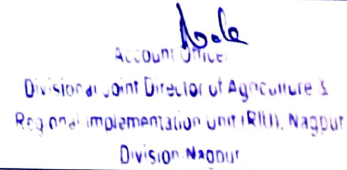 Account Officer
Divisional Joint Director of Agriculture &
Regional Implementation Unit (RIU), Nagpur
Division Nagpur